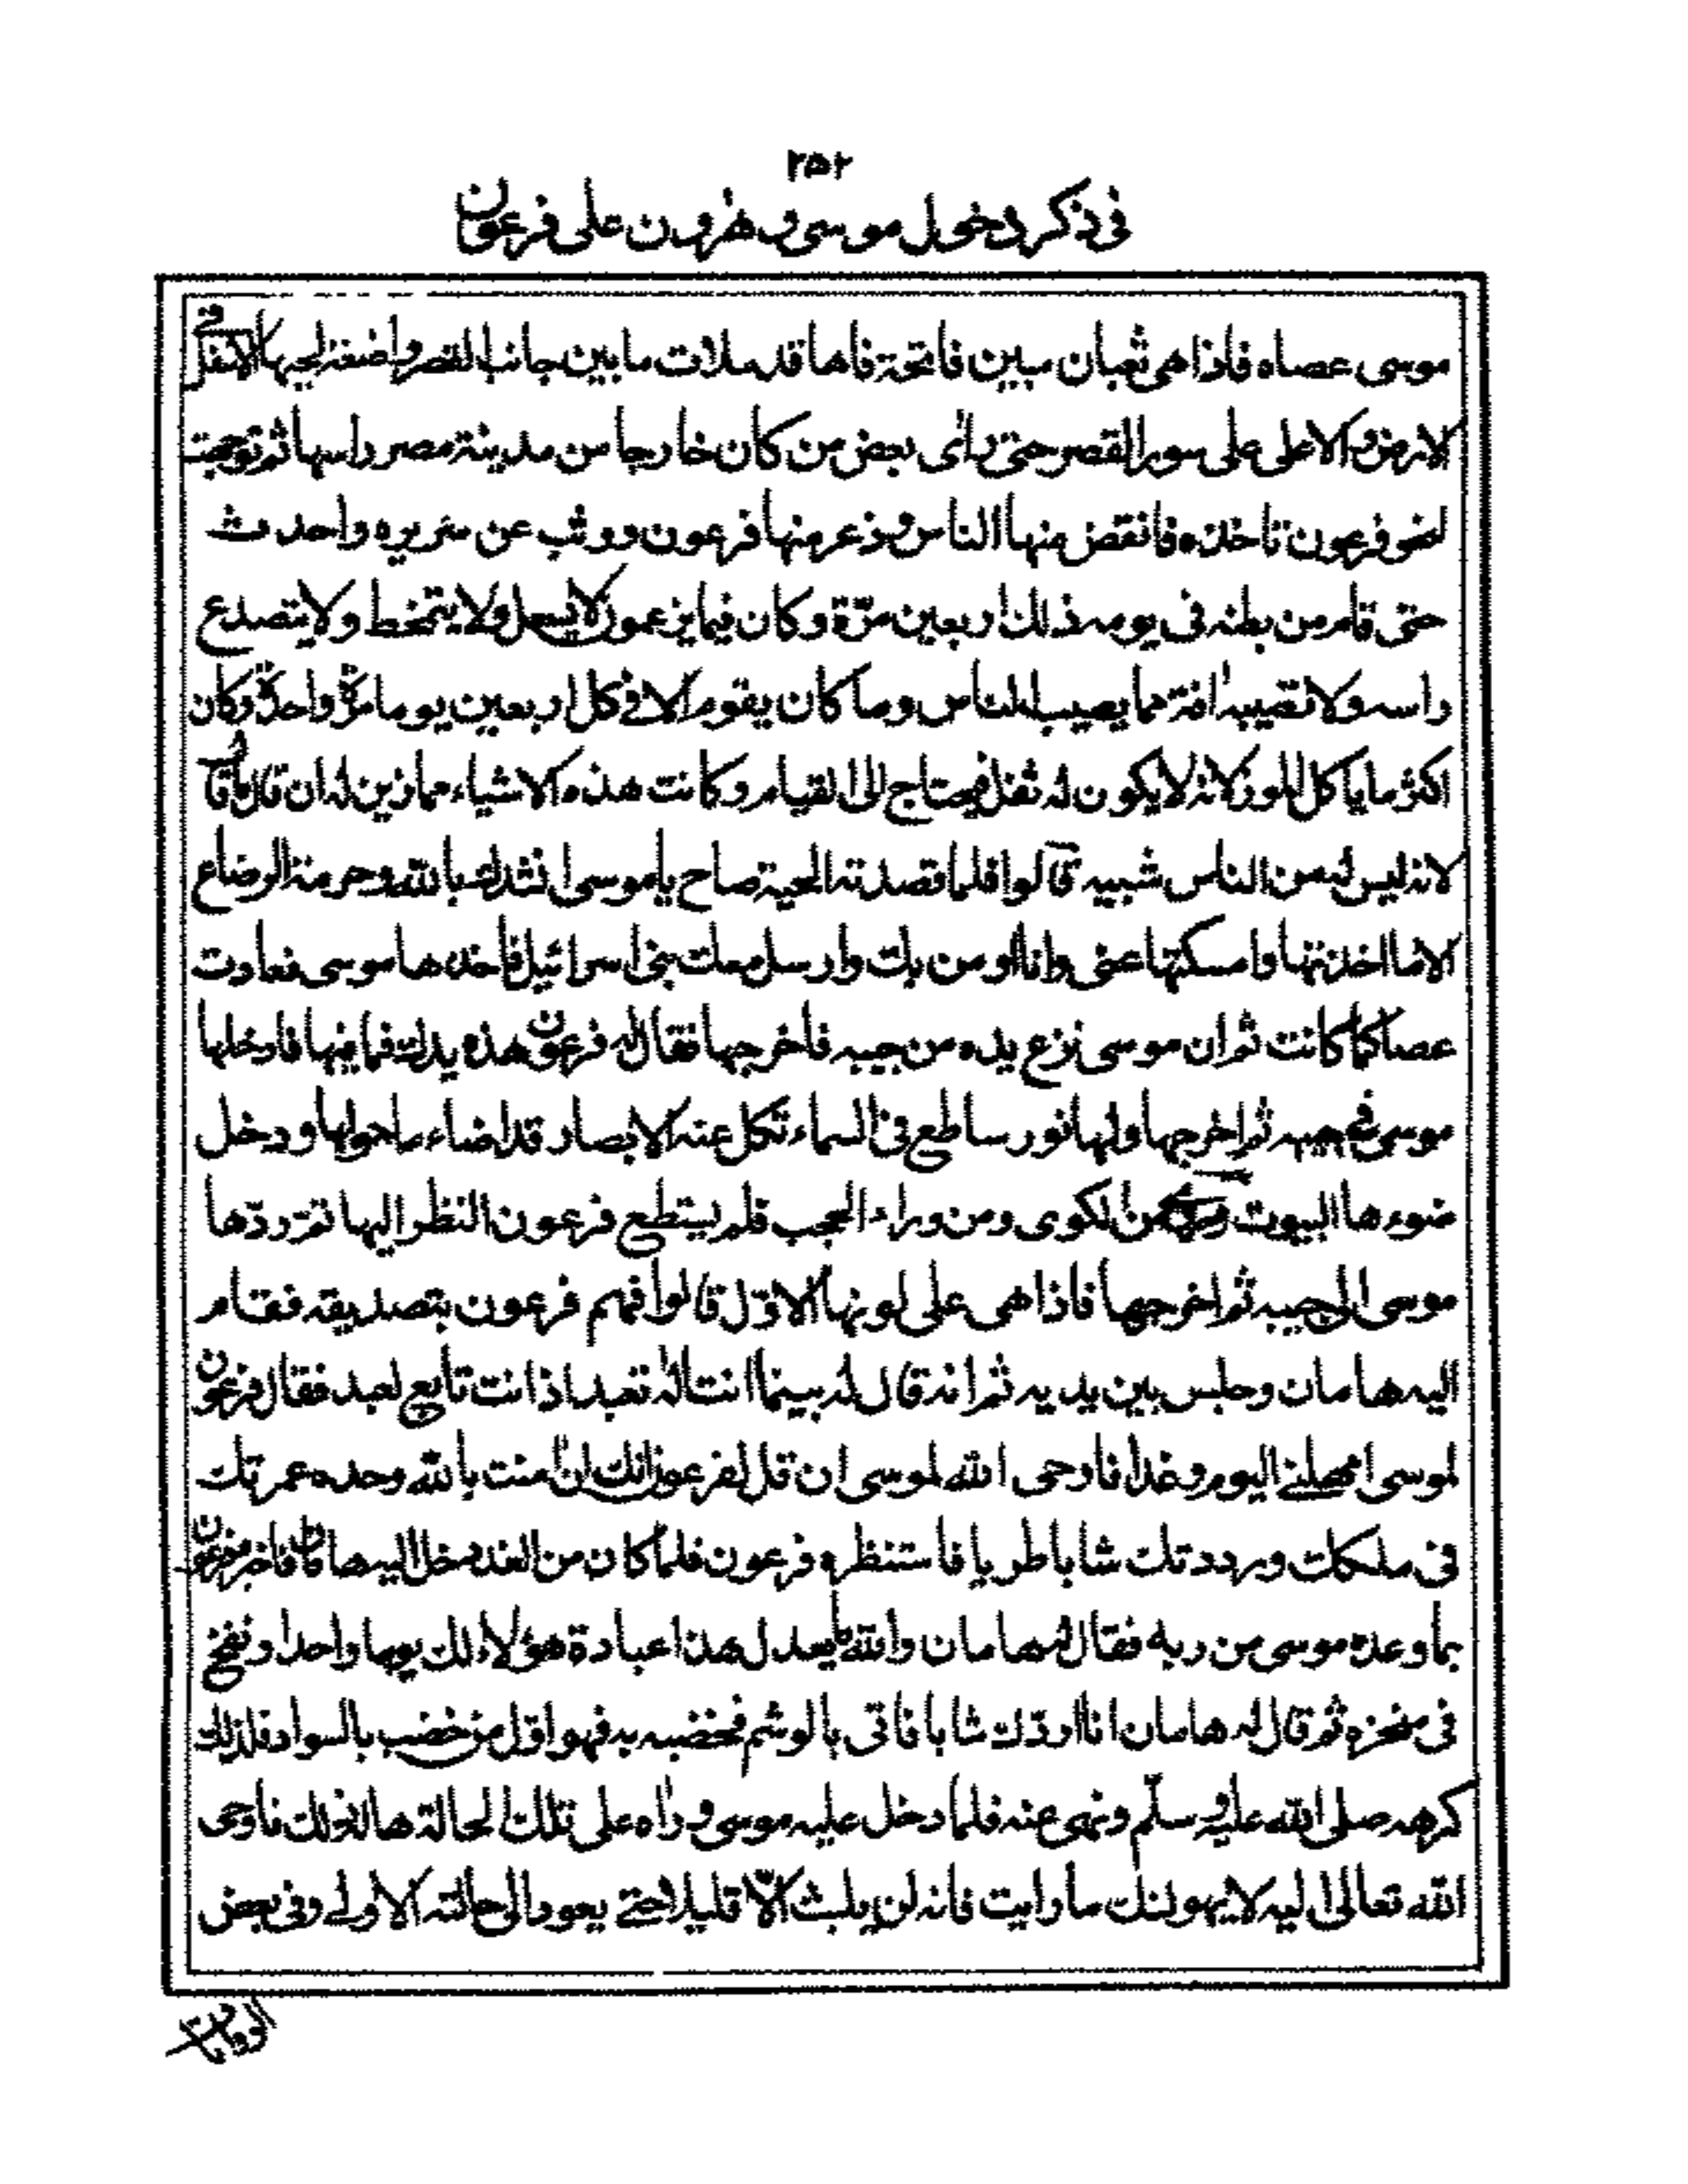 ٢٥٢
فى ذكر دخول موسى وهٰرون على فرعون
موسى عصاه فاذا هى ثعبان مبين فاتحة فاها قد ملات ما بين جانب القصر واضعة لحيها الاسفل فى
الارض والاعلى على سور القصر حتى راٰى بعض من كان خارجا من مدينة مصر راسها ثم توجهت
نحو فرعون تاخذه فانفض منها الناس وذعر منها فرعون ووثب عن سريره واحدث
حتى قام من بطنه فى يومه ذلك اربعين مرّة وكان فيما يزعمون لا يسعل ولا يتمخط ولا يتصدع
راسه ولا تصيبه اٰفة مما يصيب الناس وما كان يقوم الا فى كل اربعين يوما مرّة واحدة وكان
اكثر ما ياكل الموز لانه لا يكون له ثفل فيحتاج الى القيام وكانت هذه الاشياء مما زين له ان قال ما قال
لانه ليس له من الناس شبيه قالوا فلما قصدته الحية صاح يا موسى انشدك بالله وحرمة الرضاع
الا ما اخذتها وامسكتها عنى وانا اومن بك وارسل معك بنى اسرائيل فاخذها موسى فعادت
عصا كما كانت ثم ان موسى نزع يده من جيبه فاخرجها فقال له فرعون هذه يدك فما فيها فادخلها
موسى فى جيبه ثم اخرجها ولها نور ساطع فى السماء تكل عنه الابصار قد اضاء ما حولها ودخل
ضوءها البيوت من الكوى ومن وراء الحجب فلم يستطع فرعون النظر اليها ثم ردّها
موسى الى جيبه ثم اخرجها فاذا هى على لونها الاوّل قالوا فهم فرعون بتصديقه فقام
اليه هامان وجلس بين يديه ثم انه قال له بينما انت اله تعبد اذ انت تابع لعبد فقال فرعون
لموسى امهلنى اليوم وغدا فاوحى الله لموسى ان قل لفرعون انك ان اٰمنت بالله وحده عمرتك
فى ملكك ورددتك شابا طريا فاستنظره فرعون فلما كان من الغد دخل اليه هامان فاخبره فرعون
بما وعده موسى من ربه فقال له هامان والله ما يعدل هذا عبادة هؤلاء لك يوما واحدا ونفخ
فى منخره ثم قال له هامان انا اردّك شابا فاتى بالوشم فخضبه به فهو اوّل من خضب بالسواد فلذلك
كرهه صلى الله عليه وسلّم ونهى عنه فلما دخل عليه موسى وراٰه على تلك الحالة هاله ذلك فاوحى
الله تعالى اليه لا يهولنك ما رايت فانه لن يلبث الّا قليلا حتى يعود الى حالته الاولى وفى بعض
الروايات